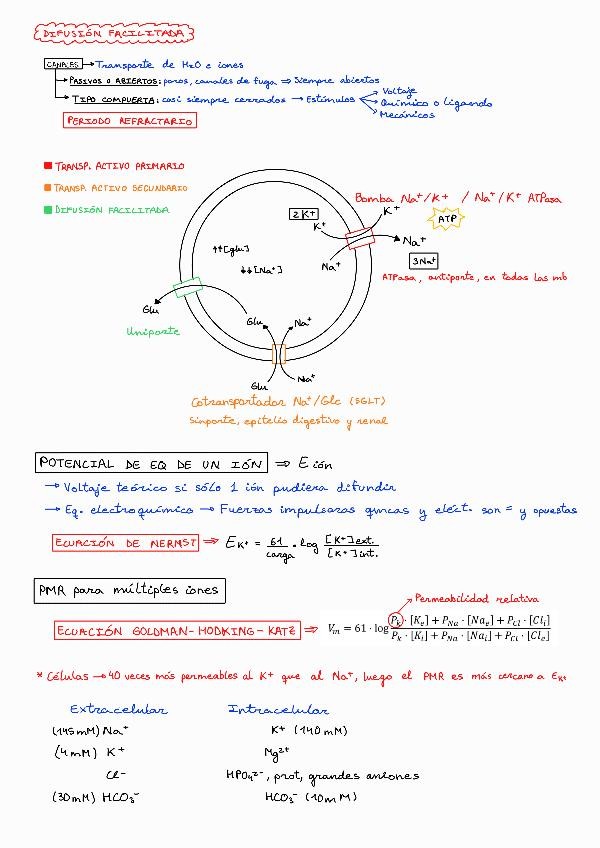 DIFUSIÓN FACILITADA
CANALES → Transporte de H₂O e iones
→ PASIVOS O ABIERTOS: poros, canales de fuga ⇒ Siempre abiertos
→ TIPO COMPUERTA: casi siempre cerrados → Estímulos
Voltaje
Químico o ligando
Mecánicos
PERIODO REFRACTARIO
TRANSP. ACTIVO PRIMARIO
TRANSP. ACTIVO SECUNDARIO
DIFUSIÓN FACILITADA
Bomba Na⁺/K⁺ / Na⁺/K⁺ ATPasa
2K⁺
K⁺
K⁺
ATP
Na⁺
Na⁺
3Na⁺
ATPasa, antiporte, en todas las mb
↑↑[glu]
↓↓[Na⁺]
Glu
Uniporte
Glu
Na⁺
Glu
Na⁺
Cotransportador Na⁺/Glc (SGLT)
Sinporte, epitelio digestivo y renal
POTENCIAL DE EQ DE UN IÓN ⇒ E ión
→ Voltaje teórico si sólo 1 ión pudiera difundir
→ Eq. electroquímico → Fuerzas impulsoras qmcas y eléct. son = y opuestas
ECUACIÓN DE NERNST ⇒ E K⁺ = 61/carga · log [K⁺]ext./[K⁺]int.
PMR para múltiples iones
Permeabilidad relativa
ECUACIÓN GOLDMAN-HODKING-KATZ ⇒ Vm = 61 · log (Pk · [Ke] + PNa · [Nae] + PCl · [Cli]) / (Pk · [Ki] + PNa · [Nai] + PCl · [Cle])
* Células → 40 veces más permeables al K⁺ que al Na⁺, luego el PMR es más cercano a E K⁺
Extracelular Intracelular
(145mM) Na⁺ K⁺ (140 mM)
(4mM) K⁺ Mg²⁺
Cl⁻ HPO₄²⁻, prot, grandes aniones
(30mM) HCO₃⁻ HCO₃⁻ (10mM)